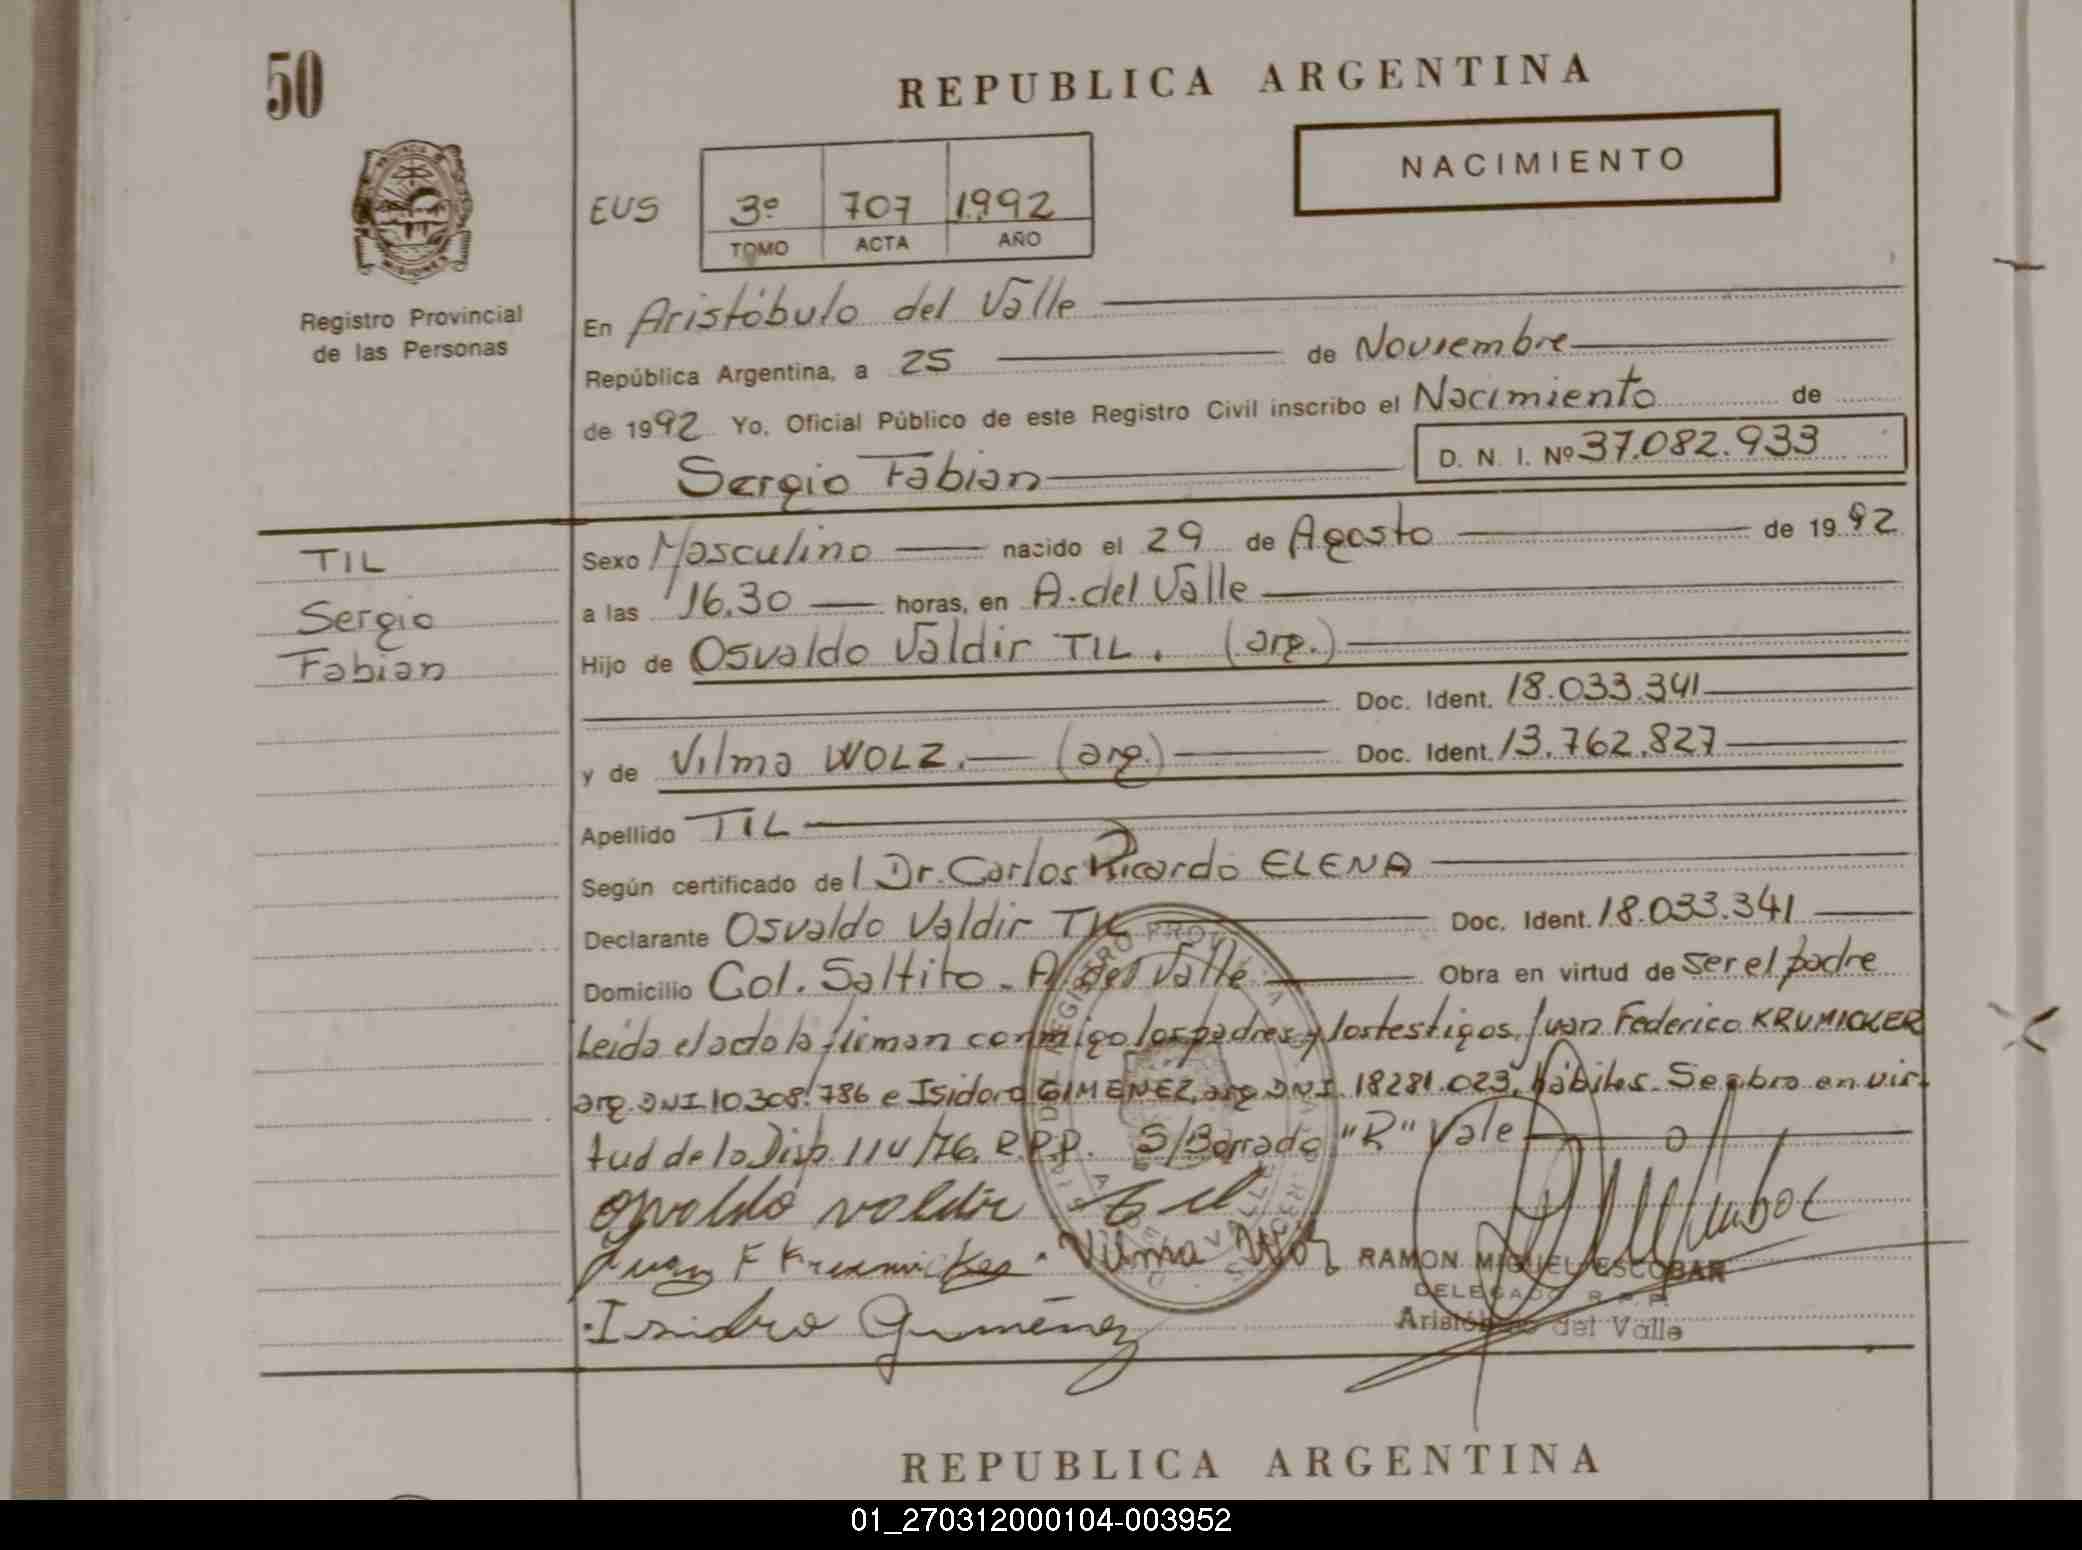 50
REPUBLICA ARGENTINA
NACIMIENTO
EUS 3º 707 1992
TOMO ACTA AÑO
PROVINCIA DE
MISIONES
Registro Provincial
de las Personas
En Aristóbulo del Valle
República Argentina, a 25 de Noviembre
de 1992 Yo, Oficial Público de este Registro Civil inscribo el Nacimiento de
Sergio Fabian D. N. I. Nº 37.082.933
TIL
Sergio
Fabian
Sexo Masculino nacido el 29 de Agosto de 1992
a las 16.30 horas, en A. del Valle
Hijo de Osvaldo Valdir TIL. (arg.)
Doc. Ident. 18.033.341
y de Vilma WOLZ. (arg.) Doc. Ident. 13.762.827
Apellido TIL
Según certificado del Dr. Carlos Ricardo ELENA
Declarante Osvaldo Valdir TIL Doc. Ident. 18.033.341
Domicilio Col. Saltito - A. del Valle Obra en virtud de ser el padre
Leida el acta la firman conmigo los padres y los testigos, Juan Federico KRUMICKER
arg. DNI. 10.308.786 e Isidoro GIMENEZ, arg DNI. 18281.023, hábiles. Se abro en vir
tud de la Disp. 114/76. R.P.P. S/Borrado "R" Vale
Osvaldo valdir til
Juan F Krumicker Vilma Wolz
RAMON MIGUEL ESCOBAR
DELEGADO R.P.P.
Aristóbulo del Valle
Isidro Gimenez
REPUBLICA ARGENTINA
01_270312000104-003952